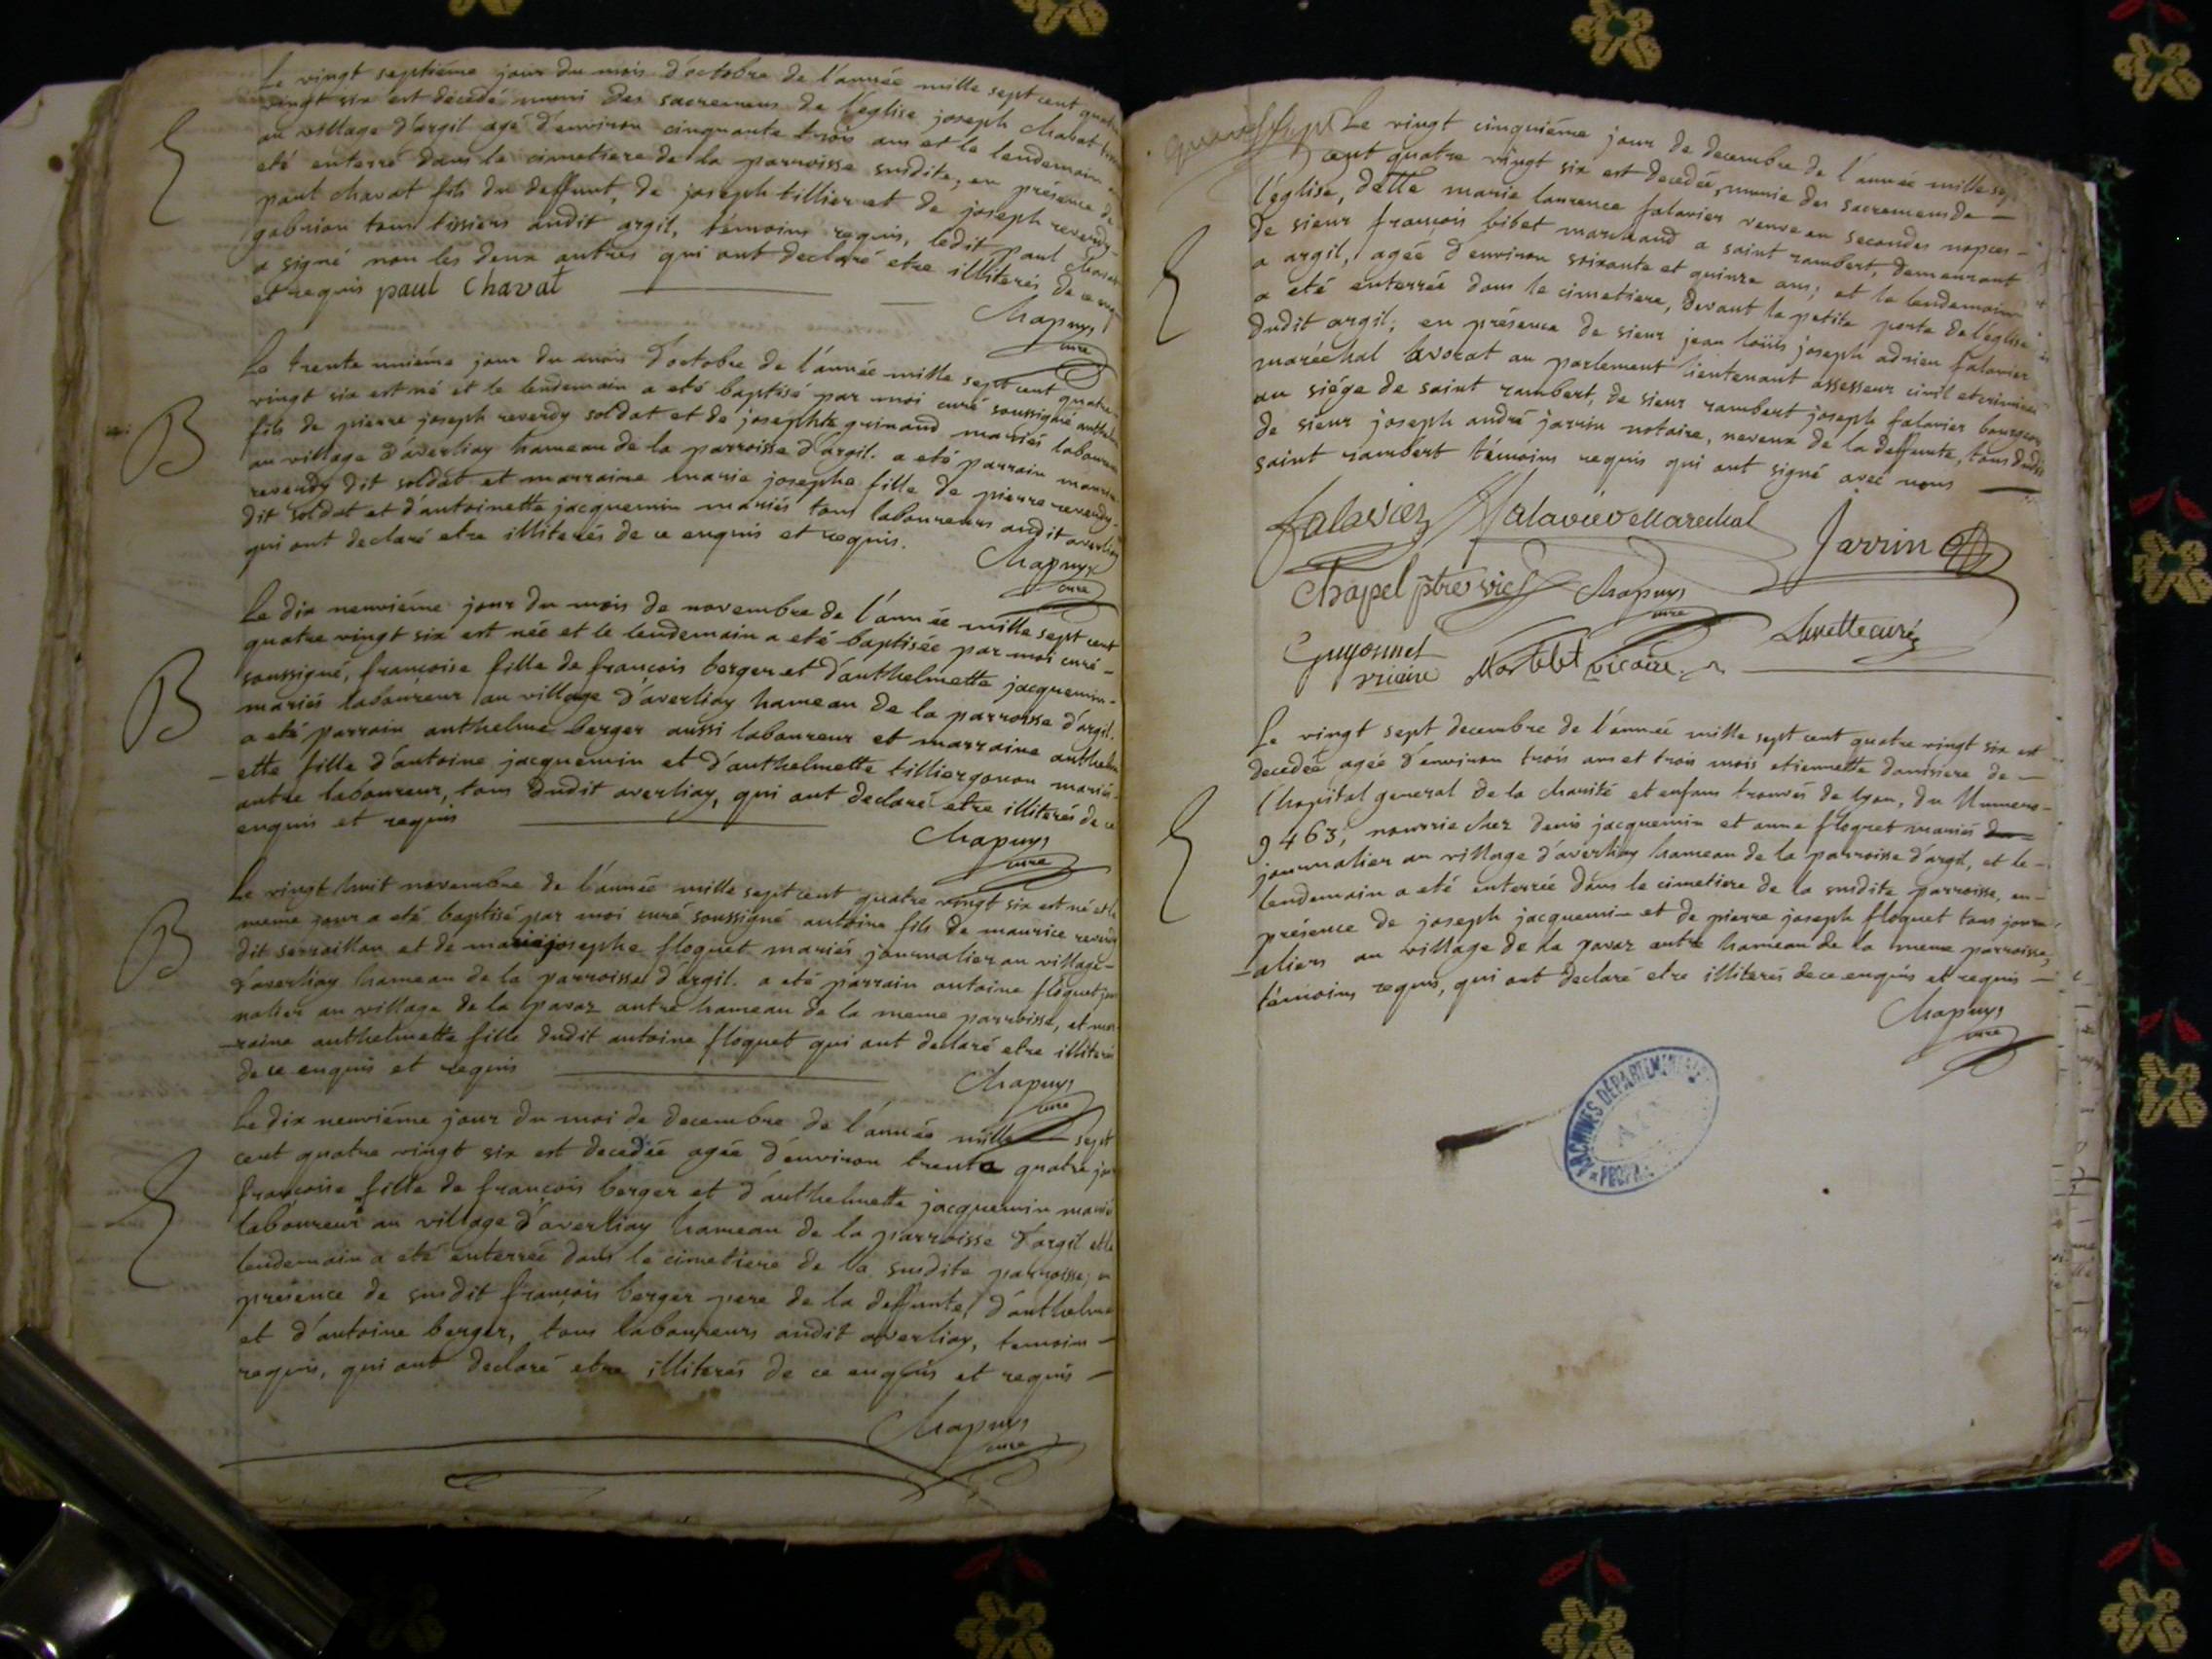 Le vingt septiéme jour du mois d'octobre de l'année mille sept cent quatre
vingt six est décedé muni des sacremens de l'église joseph chabat
au village d'argil agé d'environ cinquante trois ans et le lendemain a
eté enterré dans le cimetiere de la parroisse susdite, en présence de
paul chavat fils du deffunt, de joseph tillier et de joseph reverdy
gabrion tous tissiers audit argil, témoins requis, ledit paul chavat
a signé non les deux autres qui ont declaré etre illiterés de ce enquis
et requis paul Chavat
Chapuys
curé
B
Le trente uniéme jour du mois d'octobre de l'année mille sept cent quatre
vingt six est né et le lendemain a eté baptisé par moi curé soussigné anthelme
fils de pierre joseph reverdy soldat et de josephte guinand mariés laboureur
au village d'averliay hameau de la parroisse d'argil. a eté parrain maurice
reverdy dit soldat et marraine marie josephe fille de pierre reverdy
dit soldat et d'antoinette jacquemin mariés tous laboureurs audit averliay
qui ont declaré etre illiterés de ce enquis et requis.
Chapuys
curé
B
Le dix neuviéme jour du mois de novembre de l'année mille sept cent
quatre vingt six est née et le lendemain a eté baptisée par moi curé
soussigné, françoise fille de françois berger et d'anthelmette jacquemin
mariés laboureur au village d'averliay hameau de la parroisse d'argil.
a eté parrain anthelme berger aussi laboureur et marraine anthelm
-ette fille d'antoine jacquemin et d'anthelmette tilliergonon mariés
autre laboureur, tous dudit averliay, qui ont declaré etre illiterés de ce
enquis et requis
Chapuys
curé
B
Le vingt huit novembre de l'année mille sept cent quatre vingt six est né et le
meme jour a eté baptisé par moi curé soussigné antoine fils de maurice reverdy
dit serraillon et de marie josephe floquet mariés journalier au village
d'averliay hameau de la parroisse d'argil. a eté parrain antoine floquet jour
nalier au village de la pavaz autre hameau de la meme parroisse, et mar
-raine anthelmette fille dudit antoine floquet qui ont declaré etre illiterés
de ce enquis et requis
Chapuys
curé
Le dix neuviéme jour du moi de decembre de l'année mille sept
cent quatre vingt six est decedée agée d'environ trente quatre jours
françoise fille de françois berger et d'anthelmette jacquemin mariés
laboureur au village d'averliay hameau de la parroisse d'argil et le
lendemain a eté enterrée dans le cimetiere de la susdite parroisse, en
présence de susdit françois berger pere de la deffunte, d'anthelme
et d'antoine berger, tous laboureurs audit averliay, temoins
requis, qui ont declaré etre illiterés de ce enquis et requis
Chapuys
curé
Le vingt cinquiéme jour de decembre de l'année mille sept
cent quatre vingt six est decedée, munie des sacremens de
l'église, delle marie laurence falavier veuve en secondes nopces
de sieur françois bibet marchand a saint rambert, demeurant
a argil, agée d'environ soixante et quinze ans; et le lendemain
a eté enterrée dans le cimetiere, devant la petite porte de l'église
dudit argil; en présence de sieur jean loüis joseph adrien falavier
maréchal avocat au parlement lieutenant assesseur civil et criminel
au siége de saint rambert, de sieur rambert joseph falavier bourgeois
de sieur joseph andré jarrin notaire, neveux de la deffunte, tous dudit
saint rambert témoins requis qui ont signé avec nous
falavier falavier Marechal Jarrin
Chapel ptre vic Chapuys
curé
Guyonnet
vicaire Mortelet vicaire curé
Le vingt sept decembre de l'année mille sept cent quatre vingt six est
decedée agée d'environ trois ans et trois mois etiennette damisiere de
l'hopital general de la charité et enfans trouvés de lyon, du Numero
9463, nourrie chez denis jacquemin et anne floquet mariés
journalier au village d'averliay hameau de la parroisse d'argil, et le
lendemain a eté enterrée dans le cimetiere de la susdite parroisse, en
présence de joseph jacquemin et de pierre joseph floquet tous journ
-aliers au village de la pavaz autre hameau de la meme parroisse,
témoins requis, qui ont declaré etre illiterés de ce enquis et requis
Chapuys
curé
ARCHIVES DÉPARTEMENTALES
AIN